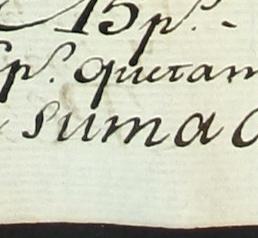 15 p.ˢ -
p.ˢ quetam
suma